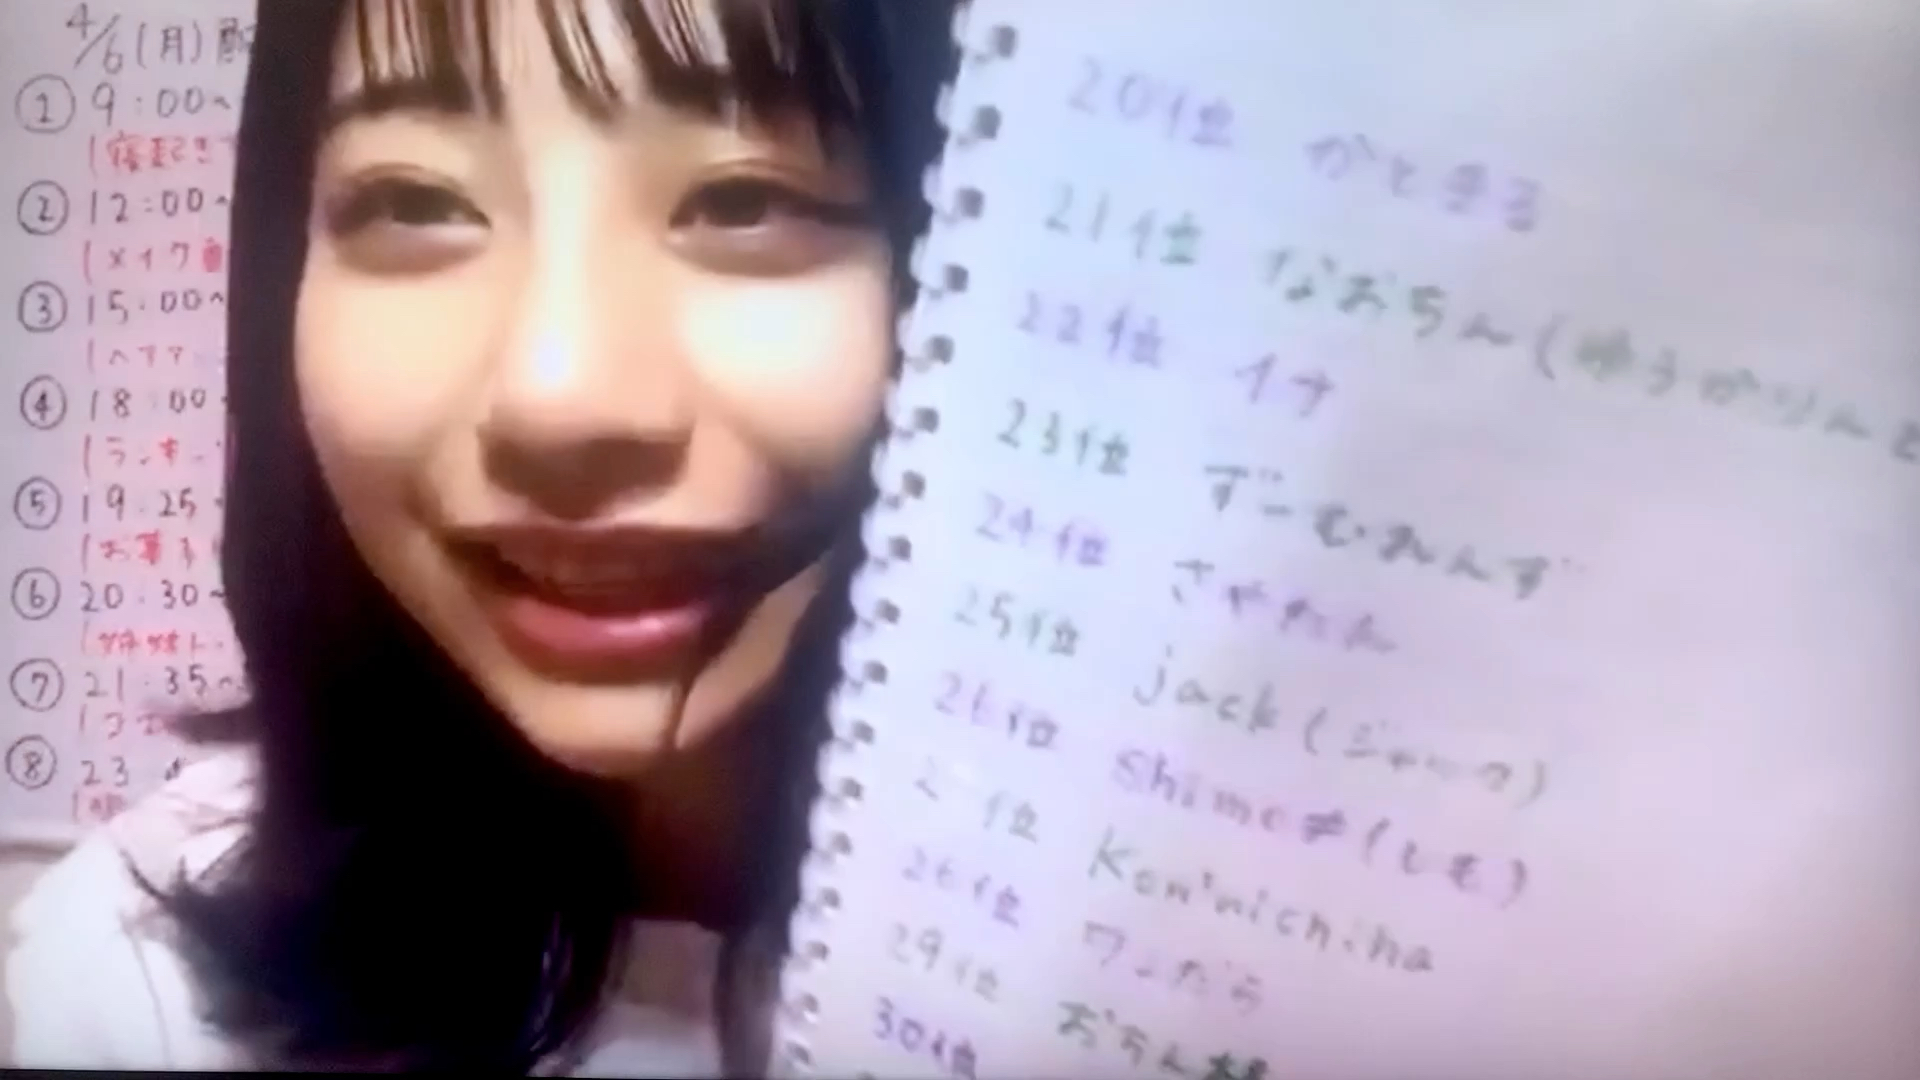 4/6(月)配
① 9:00~
(寝起き
② 12:00~
(メイク
③ 15:00~
(ヘアア
④ 18:00
(ランキン
⑤ 19:25
(お菓子
⑥ 20:30~
⑦ 21:35~
⑧ 23
20位 がとまる
21位 なおちん(ゆうがりんと
22位 イナ
23位 ずーむれんず
24位 さやたん
25位 jack(ジャック)
26位 shimo≠(しも)
位 Kon'nichiha
位 ワンだら
29位 おちん
30位